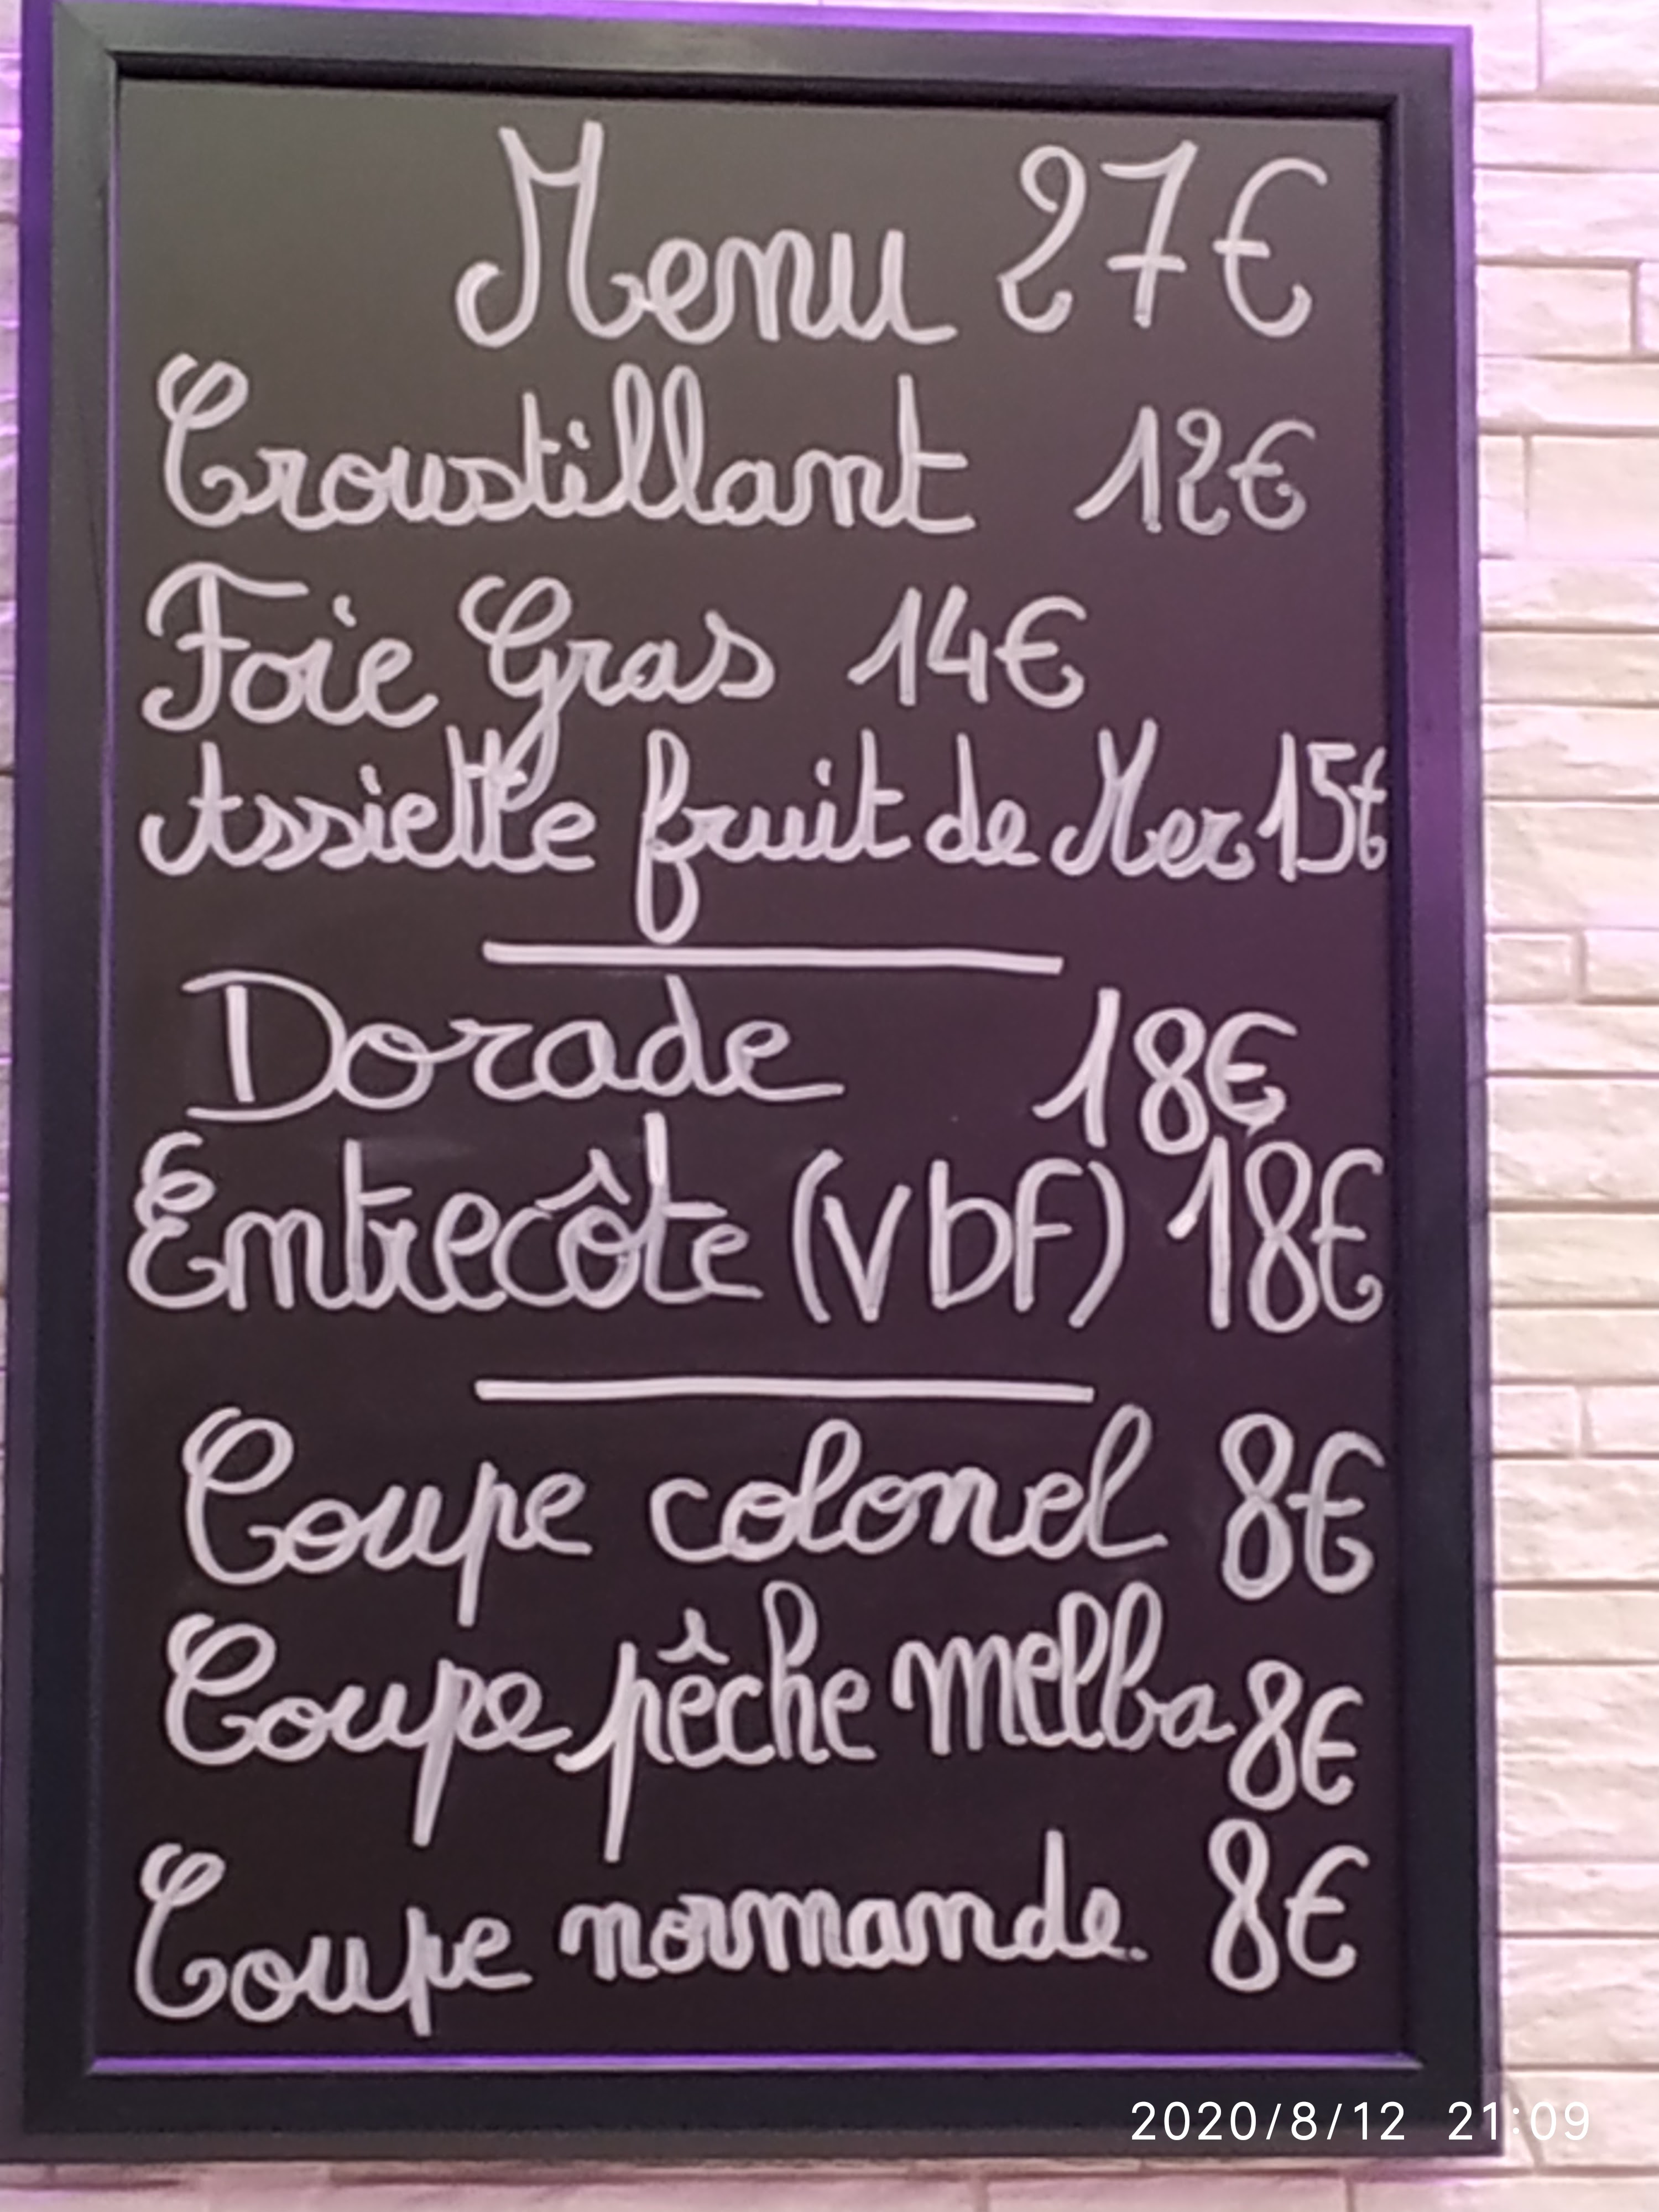 Menu 27€
Croustillant 12€
Foie Gras 14€
Assiette fruit de Mer 15€
Dorade 18€
Entrecôte (vbf) 18€
Coupe colonel 8€
Coupe pêche melba 8€
Coupe normande. 8€
2020/8/12 21:09